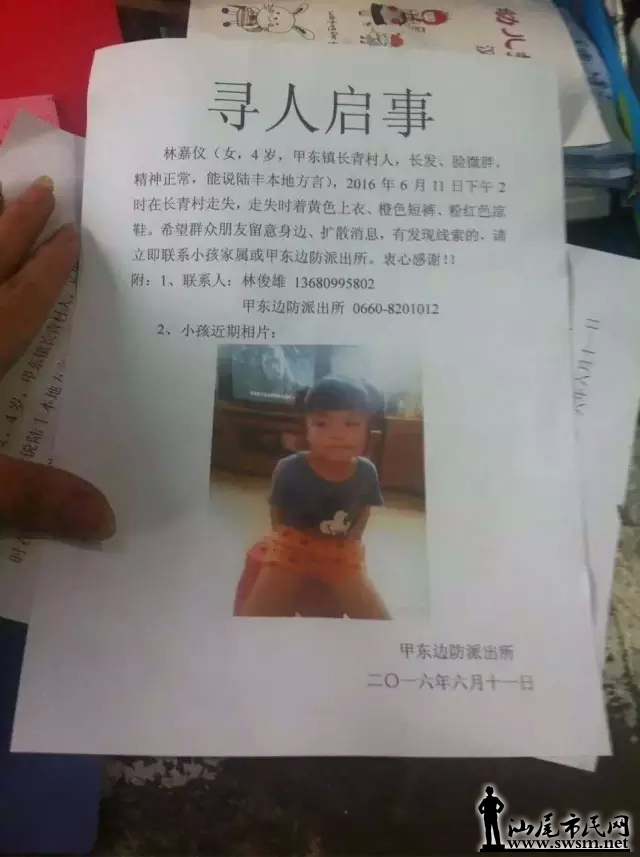 幼儿
寻人启事
林嘉仪（女，4岁，甲东镇长青村人，长发、脸微胖，
精神正常，能说陆丰本地方言），2016年6月11日下午2
时在长青村走失，走失时着黄色上衣、橙色短裤、粉红色凉
鞋。希望群众朋友留意身边、扩散消息，有发现线索的，请
立即联系小孩家属或甲东边防派出所。衷心感谢!!
附：1、联系人：林俊雄 13680995802
甲东边防派出所 0660-8201012
2、小孩近期相片：
甲东边防派出所
二〇一六年六月十一日
4岁，甲东镇长青村人，
说陆丰本地方
时在
汕尾市民网
www.swsm.net